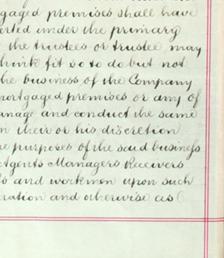 gaged premises shall have
erted under the primary
the trustees or trustee may
think fit so to do but not
the business of the Company
mortgaged premises or any of
anage and conduct the same
in their or his discretion
he purposes of the said business
Agents Managers Receivers
s and workmen upon such
eration and otherwise as